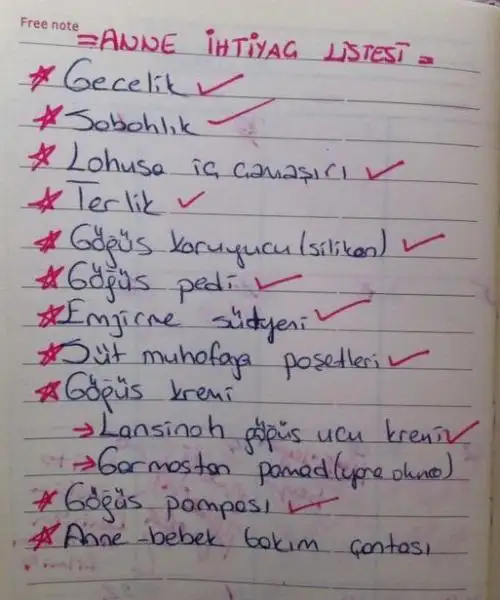 Free note
= ANNE İHTİYAG LİSTESİ =
* Gecelik ✓
* Sabahlık ✓
* Lohusa iç çamaşırı ✓
* Terlik ✓
* Göğüs koruyucu (silikon) ✓
* Göğüs pedi ✓
* Emzirme südyeni ✓
* Süt muhafaza poşetleri ✓
* Göğüs kremi
→ Lansinoh göğüs ucu kremi ✓
→ Garmastan pomad (yara olunca)
* Göğüs pompası ✓
* Anne-bebek bakım çantası